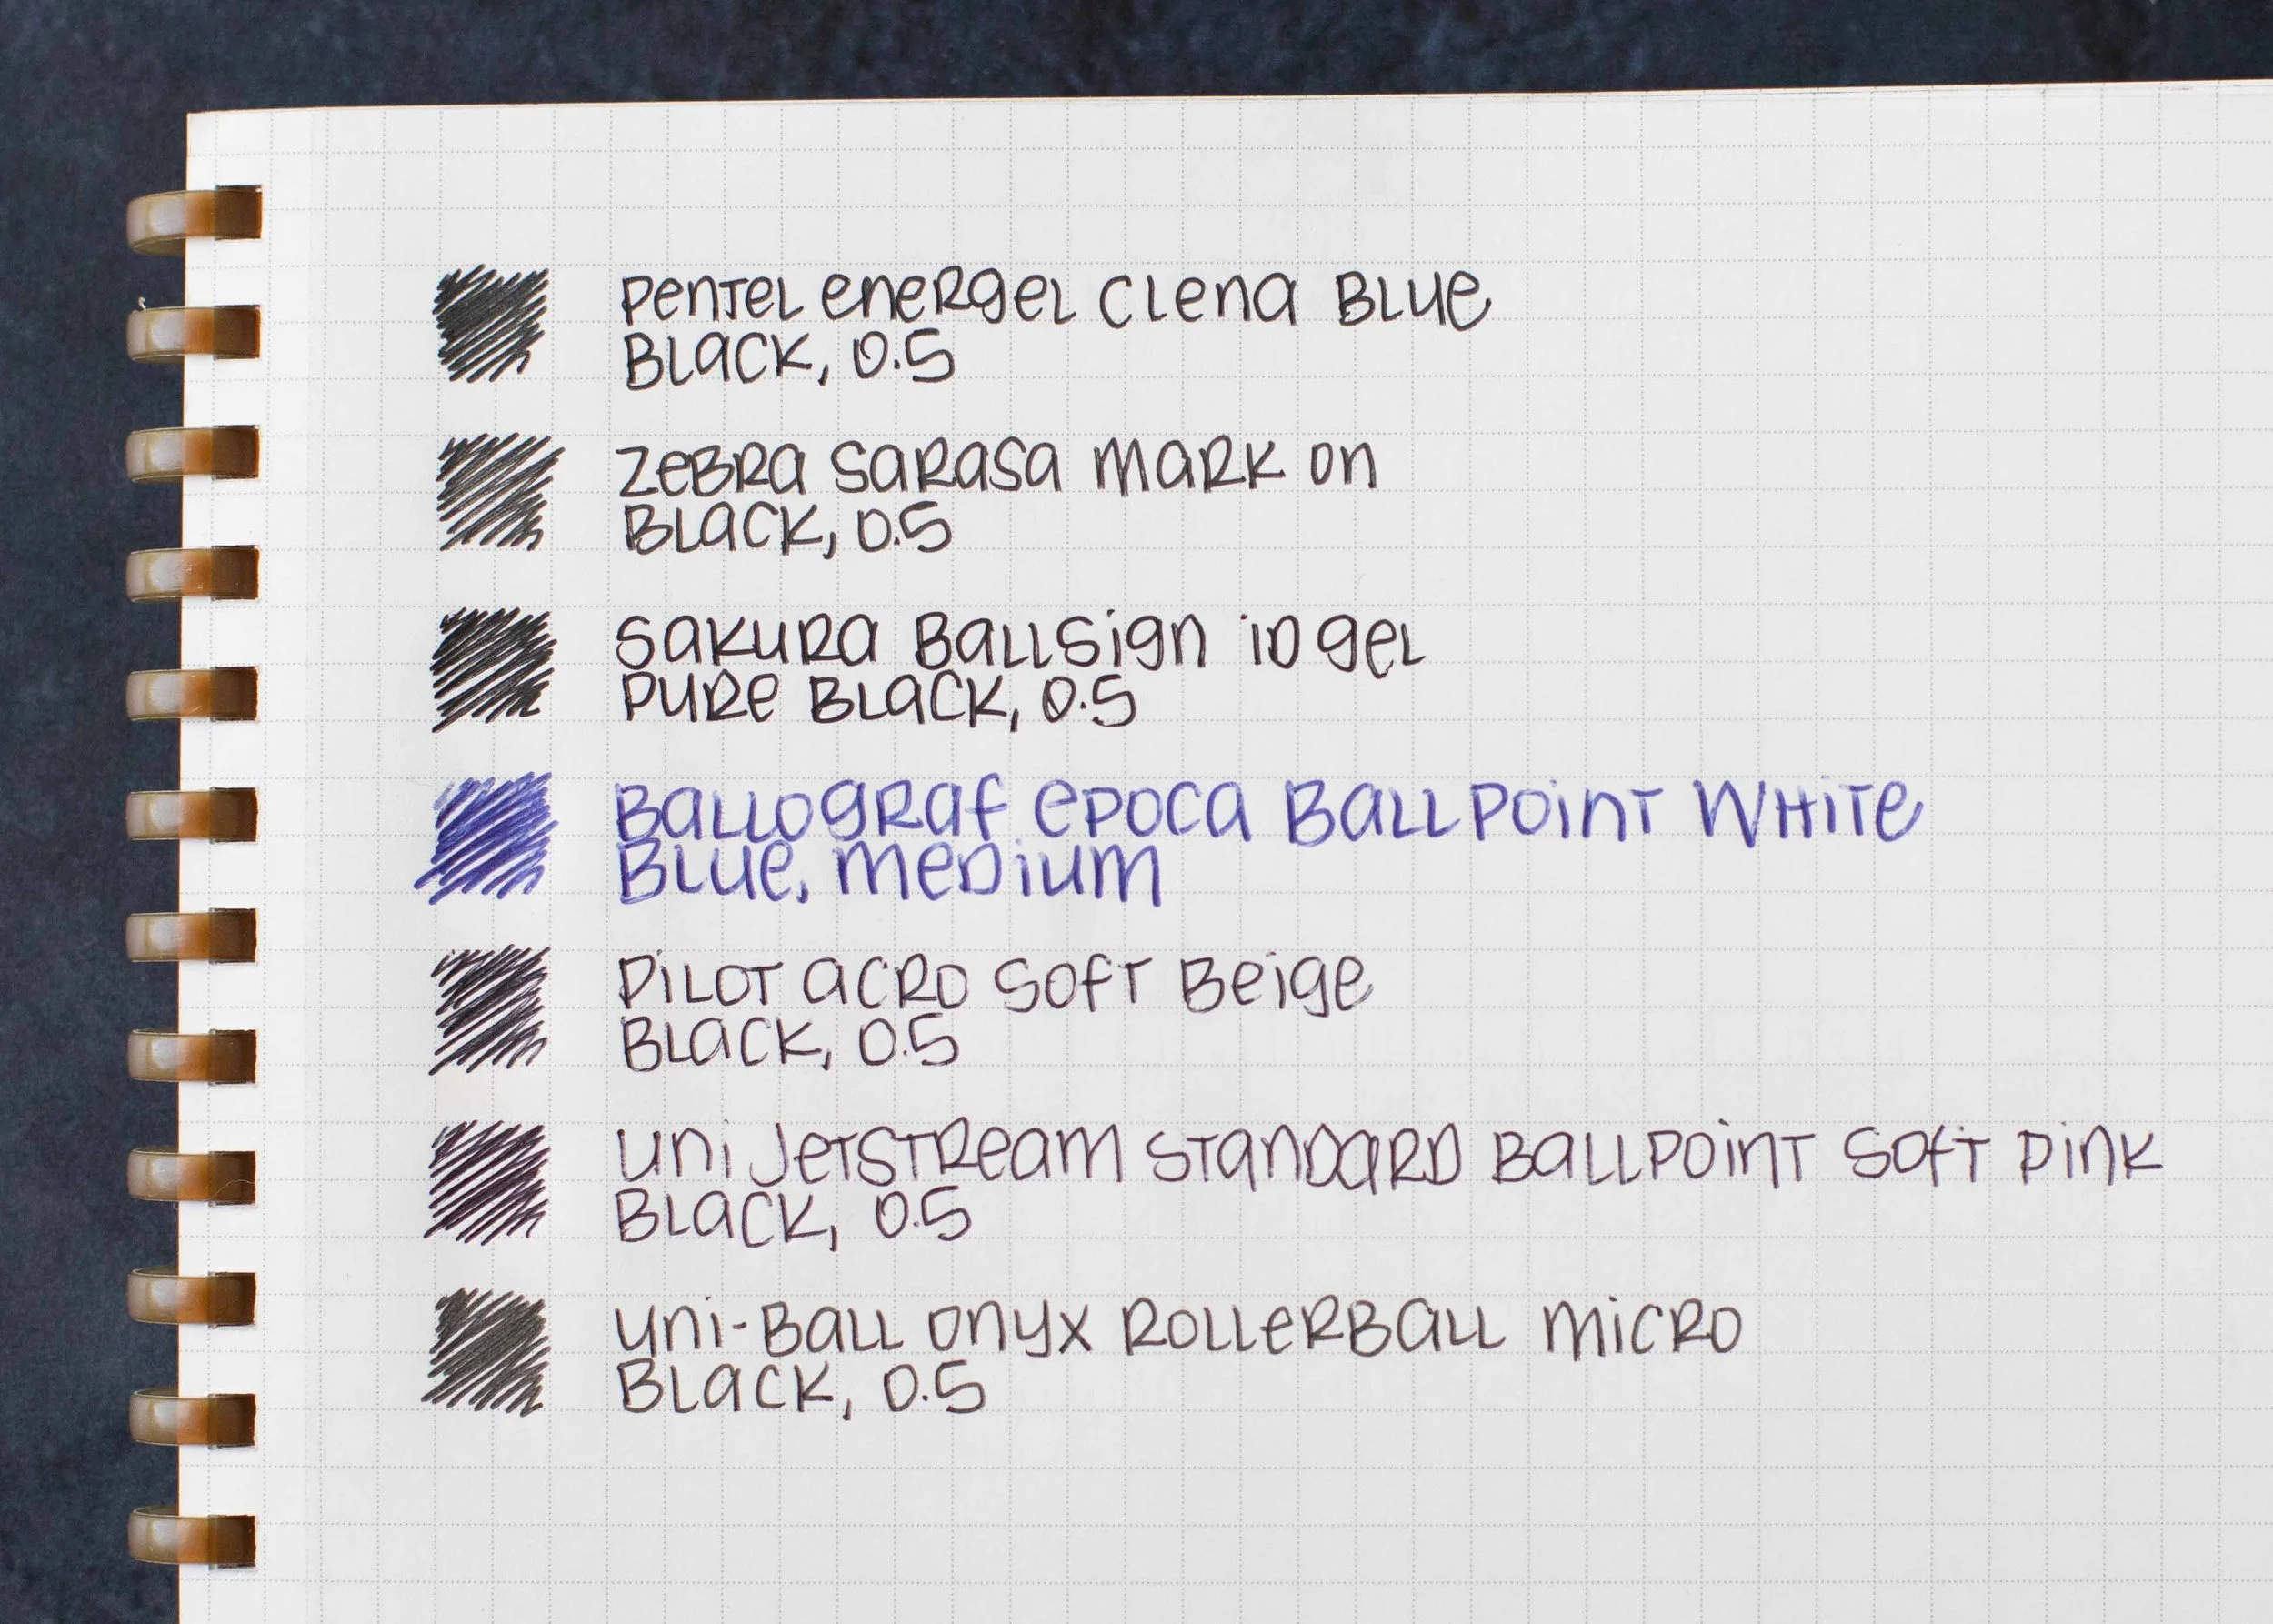 Pentel Energel Clena Blue
Black, 0.5
Zebra Sarasa Mark On
Black, 0.5
Sakura Ballsign iD Gel
Pure Black, 0.5
Ballograf Epoca Ballpoint White
Blue, Medium
Pilot Acro Soft Beige
Black, 0.5
Uni Jetstream Standard Ballpoint Soft Pink
Black, 0.5
Uni-Ball Onyx Rollerball Micro
Black, 0.5